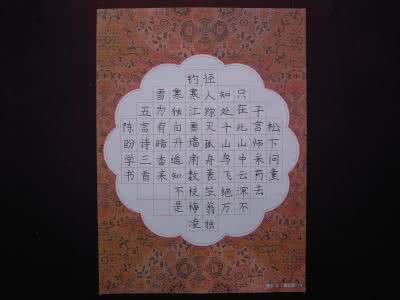 松下问童
子言师采药去
只在此山中云深不
知处千山鸟飞绝万
径人踪灭孤舟蓑笠翁独
钓寒江雪墙角数枝梅凌
寒独自开遥知不是
雪为有暗香来
五言诗三首
陈盼学书